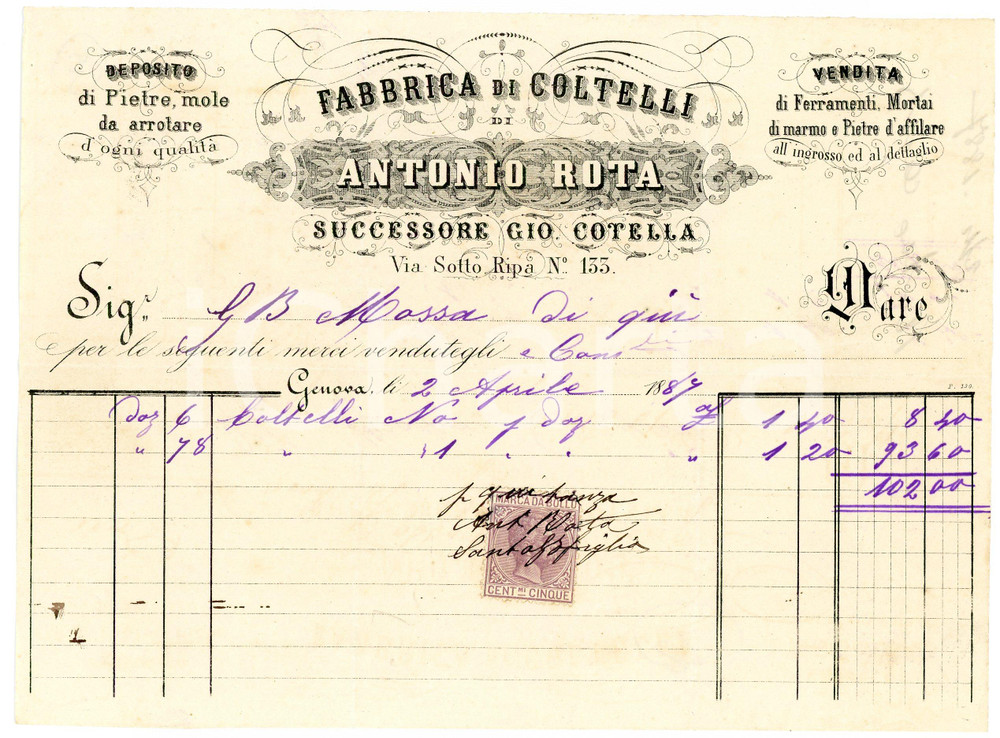 DEPOSITO
di Pietre, mole
da arrotare
d'ogni qualità
FABBRICA DI COLTELLI
DI
ANTONIO ROTA
SUCCESSORE GIO. COTELLA
Via Sotto Ripa Nº 133.
VENDITA
di Ferramenti, Mortai
di marmo e Pietre d'affilare
all'ingrosso ed al dettaglio
Sig.r G B Mossa di qui
Dare
per le seguenti merci vendutegli e Cons
Genova, li 2 Aprile 1887
P. 130.
Doz 6 Coltelli No p doz 1 40 8 40
" 78 " " 1 " " " 1 20 93 60
102 00
p quitanza
Ant Rota
MARCA DA BOLLO
CENT.MI CINQUE